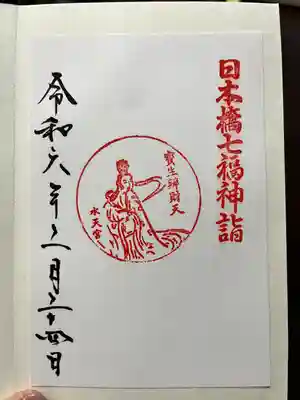 日本橋七福神詣
寳生辨財天
水天宮
令和六年二月二十四日